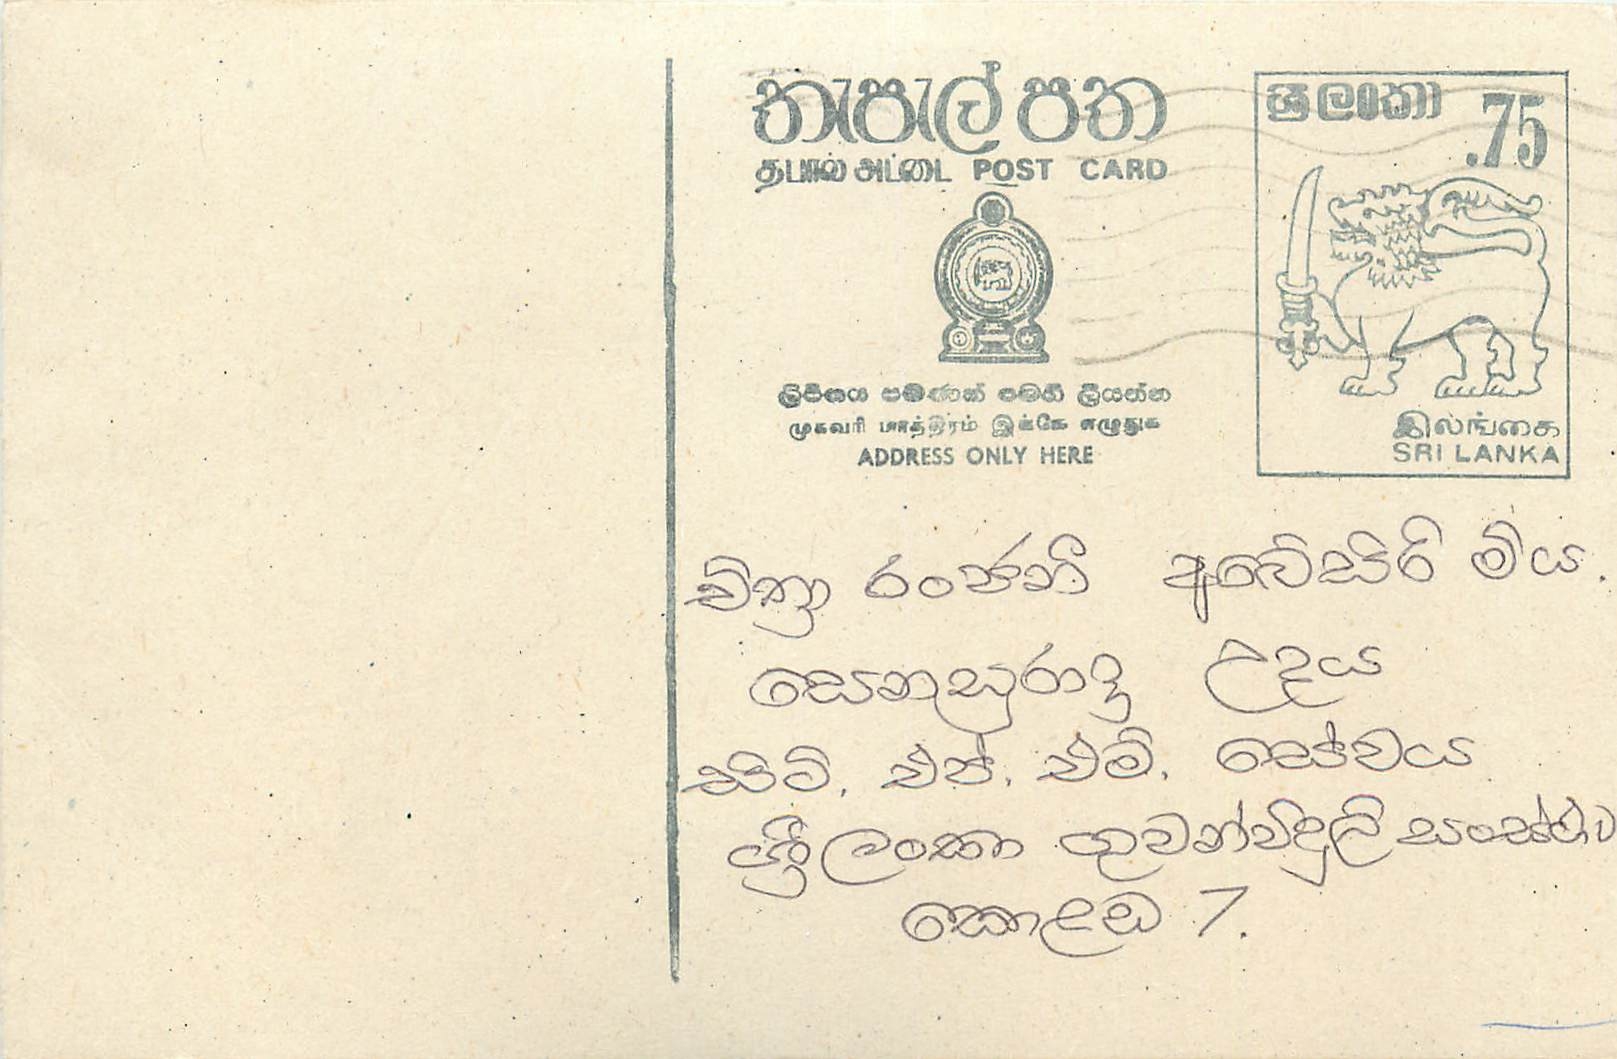 තැපැල් පත
தபால் அட்டை POST CARD
ශ්‍රී ලංකා .75
ලිපිනය පමණක් පමණි ලියන්න
முகவரி மாத்திரம் இக்கே எழுதுக
ADDRESS ONLY HERE
இலங்கை
SRI LANKA
චිත්‍රා රංජනී අබේසිරි මිය.
සෙනසුරාදා උදය
සිටි. එන්. එම්. සේවය
ශ්‍රී ලංකා ගුවන්විදුලි සංස්ථාව
කොළඹ 7.